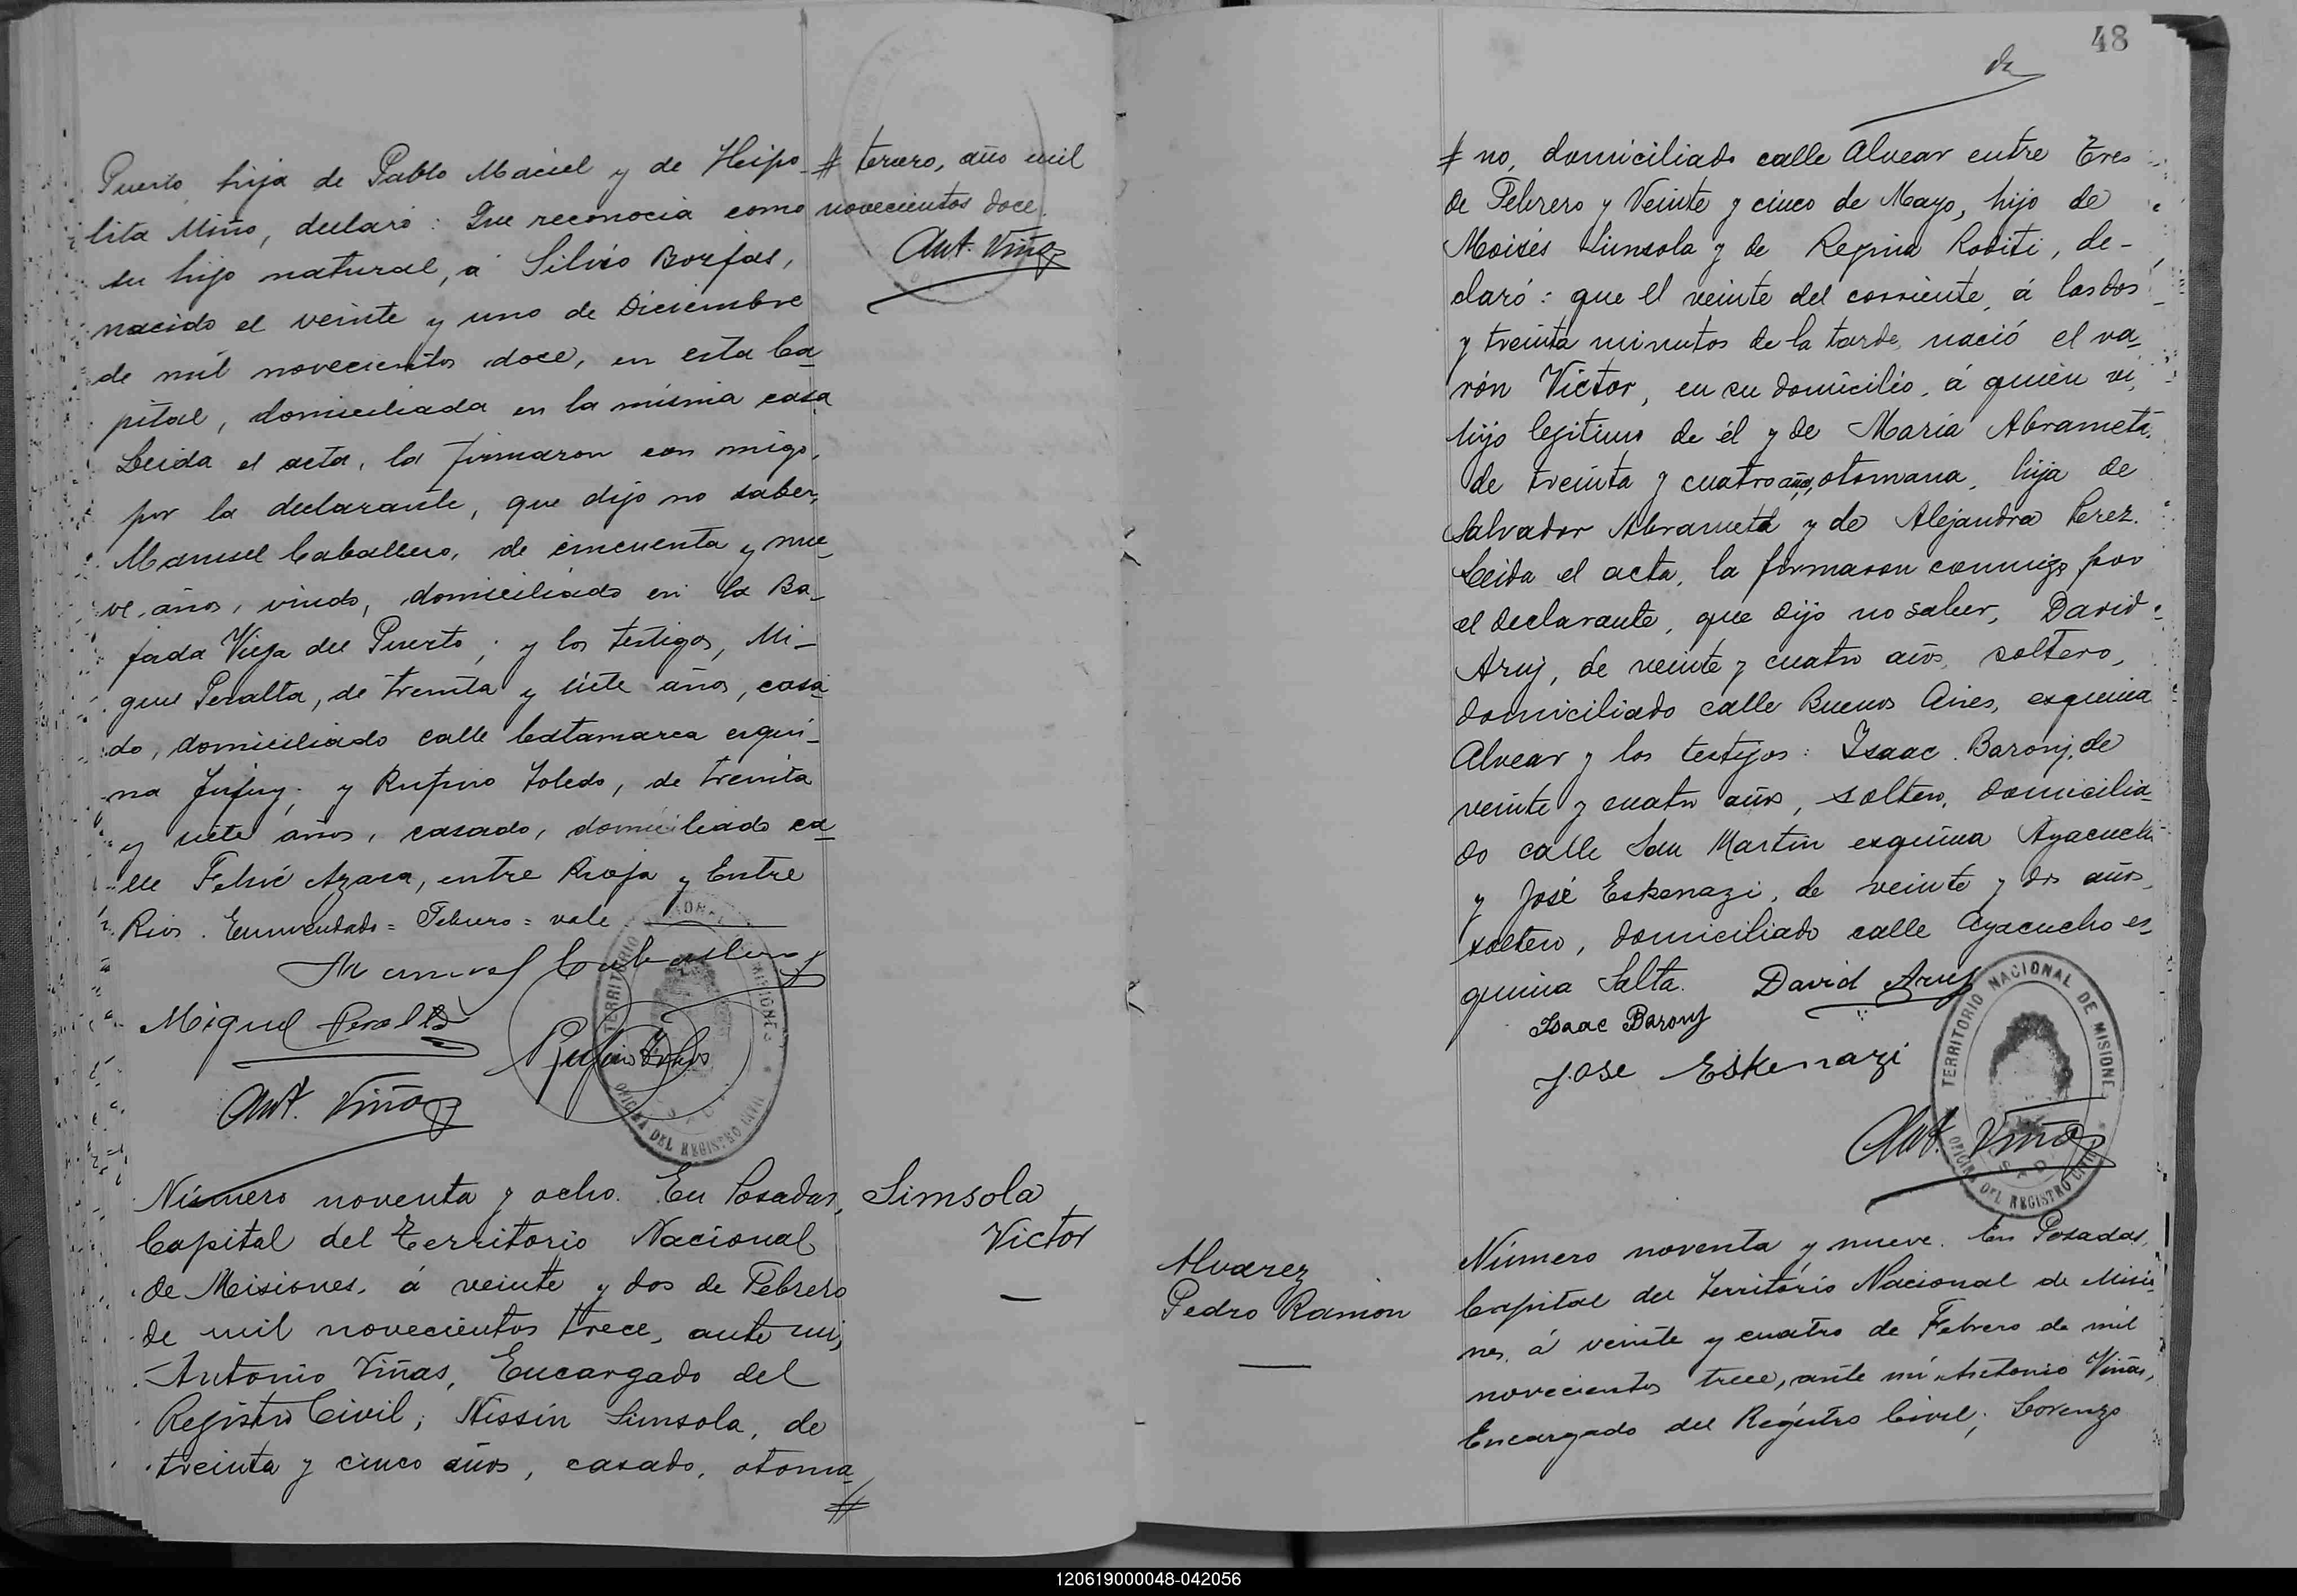 Puerto, hija de Pablo Maciel y de Heipo-
lita Miño, declaró: Que reconocia como
su hijo natural, á Silvio Borjas,
nacido el veinte y uno de Diciembre
de mil novecientos doce, en esta Ca-
pital, domiciliada en la misma casa
Leida el acta, la firmaron con migo,
por la declarante, que dijo no saber,
Manuel Caballero, de cincuenta y nue-
ve años, viudo, domiciliado en la Ba-
jada Vieja del Puerto; y los testigos, Mi-
guel Peralta, de treinta y siete años, casa-
do, domiciliado calle Catamarca esqui-
na Jujuy; y Rufino Toledo, de treinta
y siete años, casado, domiciliado ca-
lle Felix Azara, entre Rioja y Entre
Rios. Enmendado = Febrero = vale
Manuel Caballero
Miguel Peralta
Ant. Viñas
# tercero, año mil
novecientos doce.
Ant. Viñas
Número noventa y ocho. En Posadas,
Capital del Territorio Nacional
de Misiones, á veinte y dos de Febrero
de mil novecientos trece, ante mi,
Antonio Viñas, Encargado del
Registro Civil; Nissin Simsola, de
treinta y cinco años, casado, otoma-
#
Simsola
Victor
48
# no, domiciliado calle Alvear entre Tres
de Febrero y Veinte y cinco de Mayo, hijo de
Moisés Simsola y de Regina Roditi, de-
claró: que el veinte del corriente, á las dos
y treinta minutos de la tarde, nació el va-
rón Victor, en su domicilio, á quien vi,
hijo legitimo de él y de Maria Abrameto,
de treinta y cuatro años, otomana, hija de
Salvador Abrameto y de Alejandra Perez.
Leida el acta, la firmaron conmigo por
el declarante, que dijo no saber, David
Aruj, de veinte y cuatro años, soltero,
domiciliado calle Buenos Aires, esquina
Alvear y los testigos: Isaac Barony, de
veinte y cuatro años, soltero, domicilia-
do calle San Martin esquina Ayacucho
y José Eskenazi, de veinte y dos años,
soltero, domiciliado calle Ayacucho es-
quina Salta. David Aruj
Isaac Barony
Jose Eskenazi
TERRITORIO NACIONAL DE MISIONES
OFICINA DEL REGISTRO CIVIL
Ant. Viñas
Alvarez
Pedro Ramon
Número noventa y nueve. En Posadas,
Capital del Territorio Nacional de Misio-
nes, á veinte y cuatro de Febrero de mil
novecientos trece, ante mi Antonio Viñas,
Encargado del Registro Civil; Lorenzo
120619000048-042056